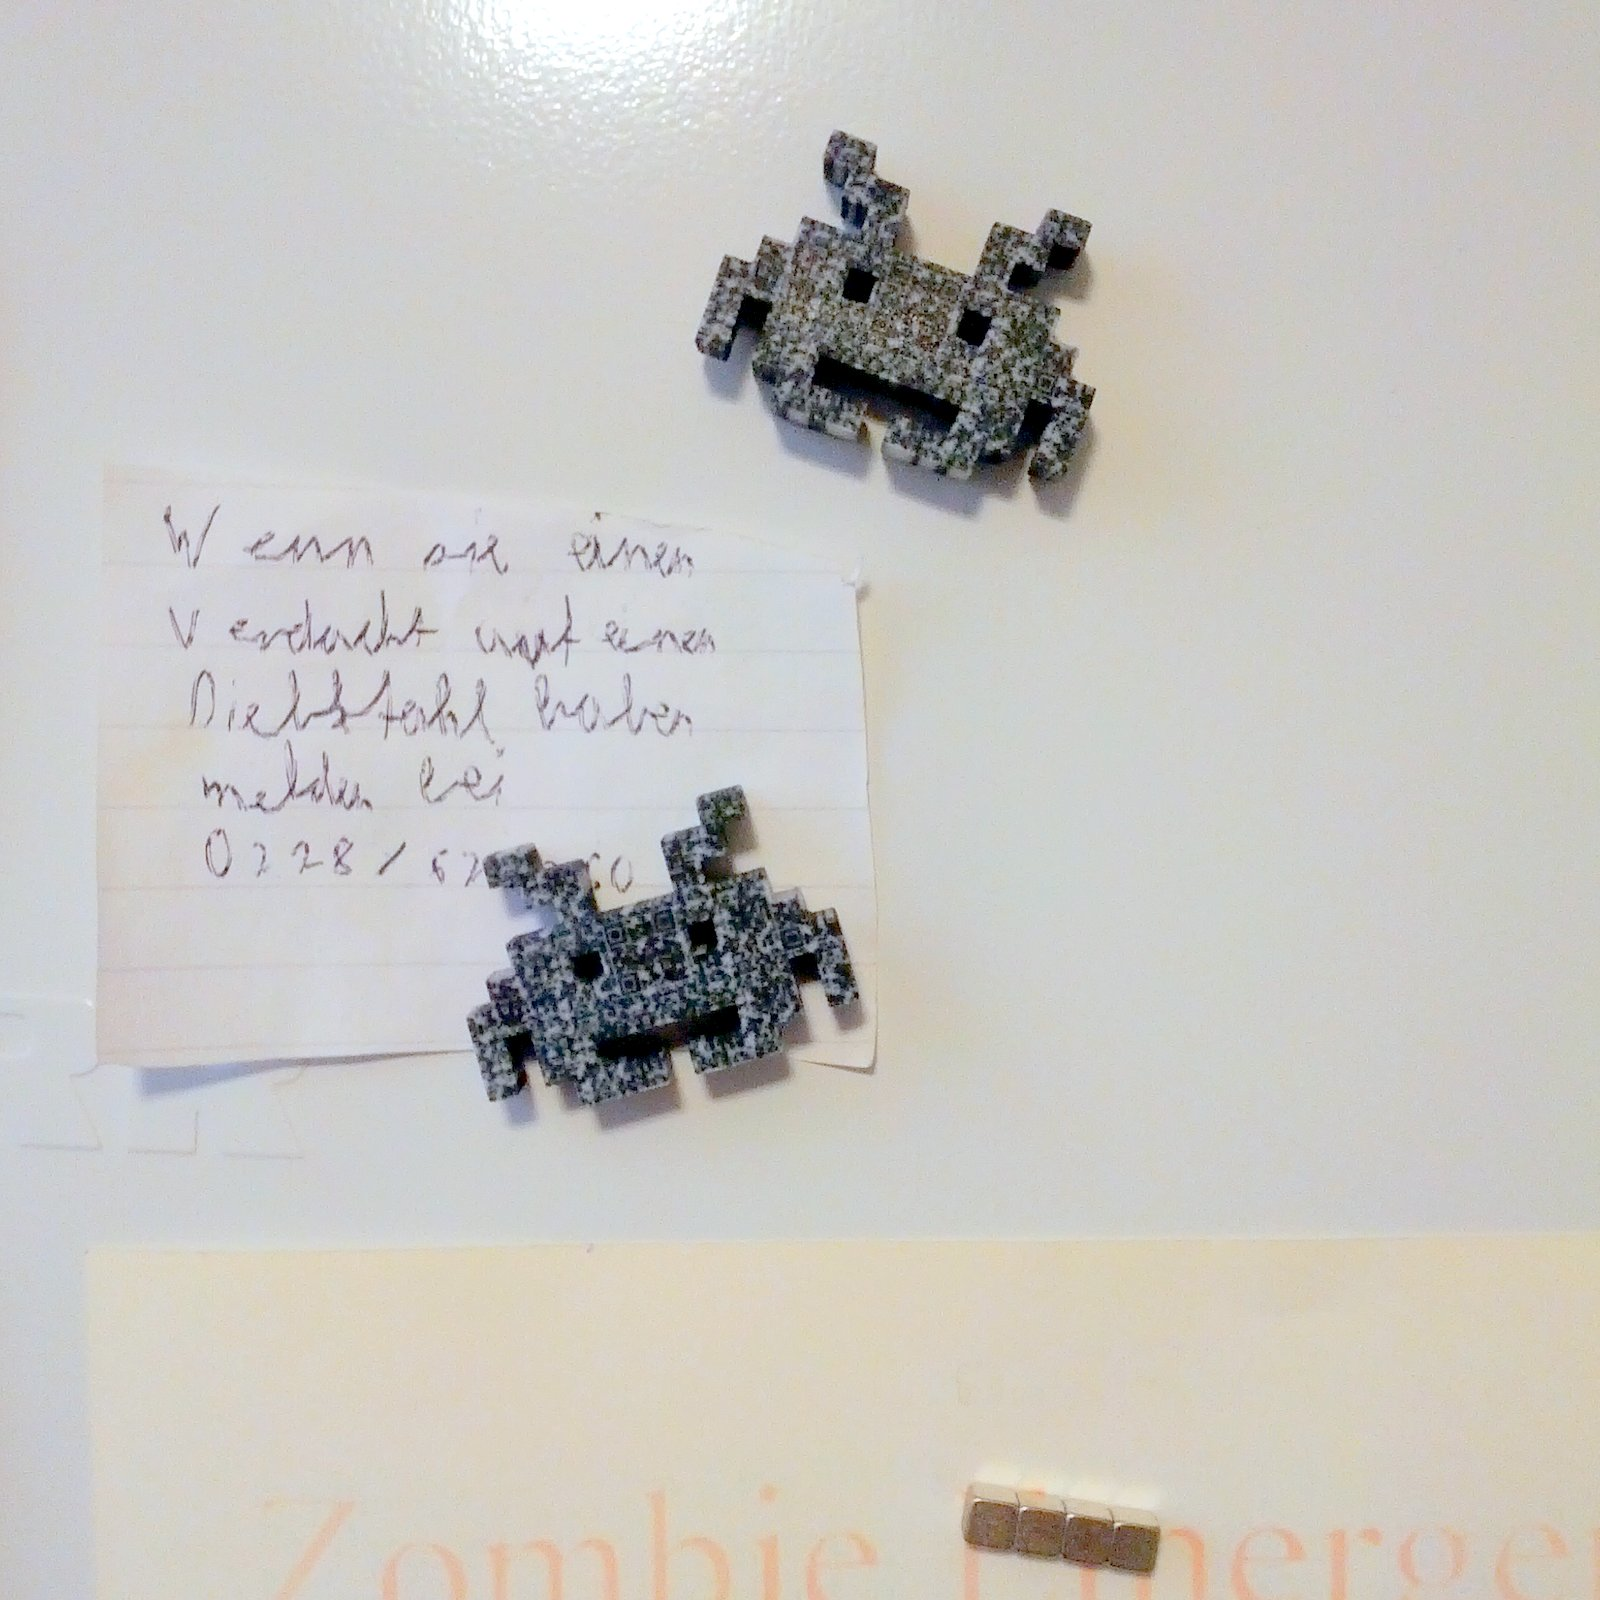 Wenn sie einen
Verdacht auf einen
Diebstahl haben
melden bei
0228/62 60
Zombie Emerge